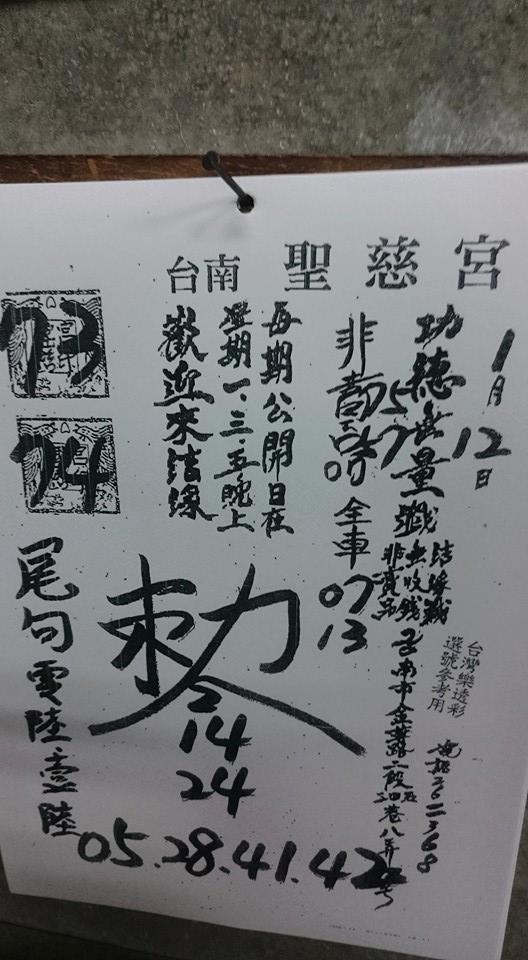 台南 聖慈宮
1月12日
功德無量
結緣
無收錢
非賣品
台灣樂透彩
選號參考用
台南市金華路二段
巷八弄
非賣品
全車
07
13
每期公開日在
星期一、三、五晚上
歡迎來結緣
73
74
尾句零陸壹陸
敕
2
14
24
05.28.41.42